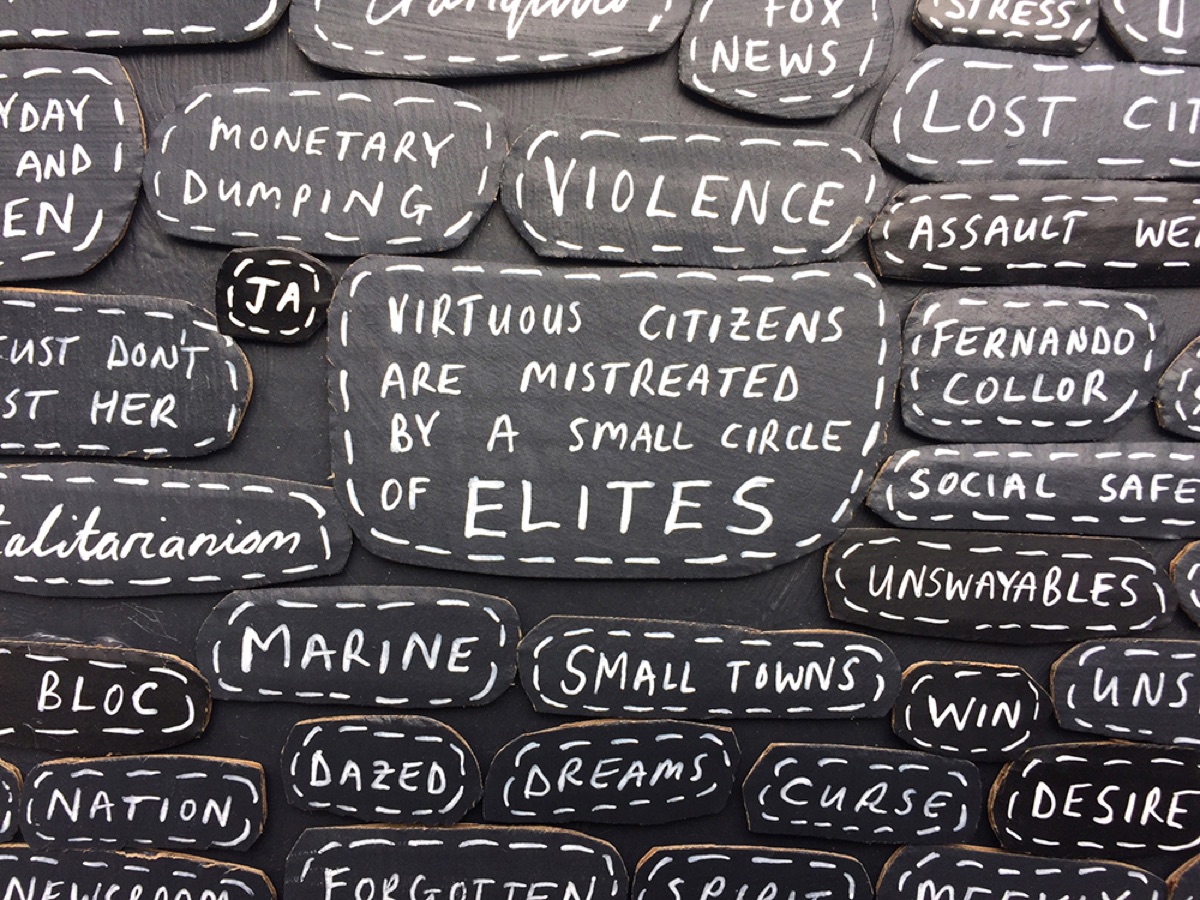 FOX
NEWS
STRESS
MONETARY
DUMPING
VIOLENCE
LOST
ASSAULT
AND
JA
VIRTUOUS CITIZENS
ARE MISTREATED
BY A SMALL CIRCLE
OF ELITES
FERNANDO
COLLOR
DON'T
HER
SOCIAL
UNSWAYABLES
MARINE
SMALL TOWNS
BLOC
WIN
UNS
DAZED
DREAMS
CURSE
DESIRE
NATION
NEWSROOM
FORGOTTEN
SPIRIT